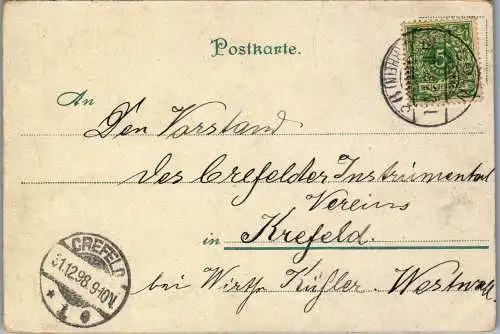 Postkarte.
5
An
Den Vorstand
des Crefelder Instrumental
Vereins
in Krefeld.
bei Wirth Küfler. Westwall
CREFELD
31.12.98. 9-10V.
* 1 e